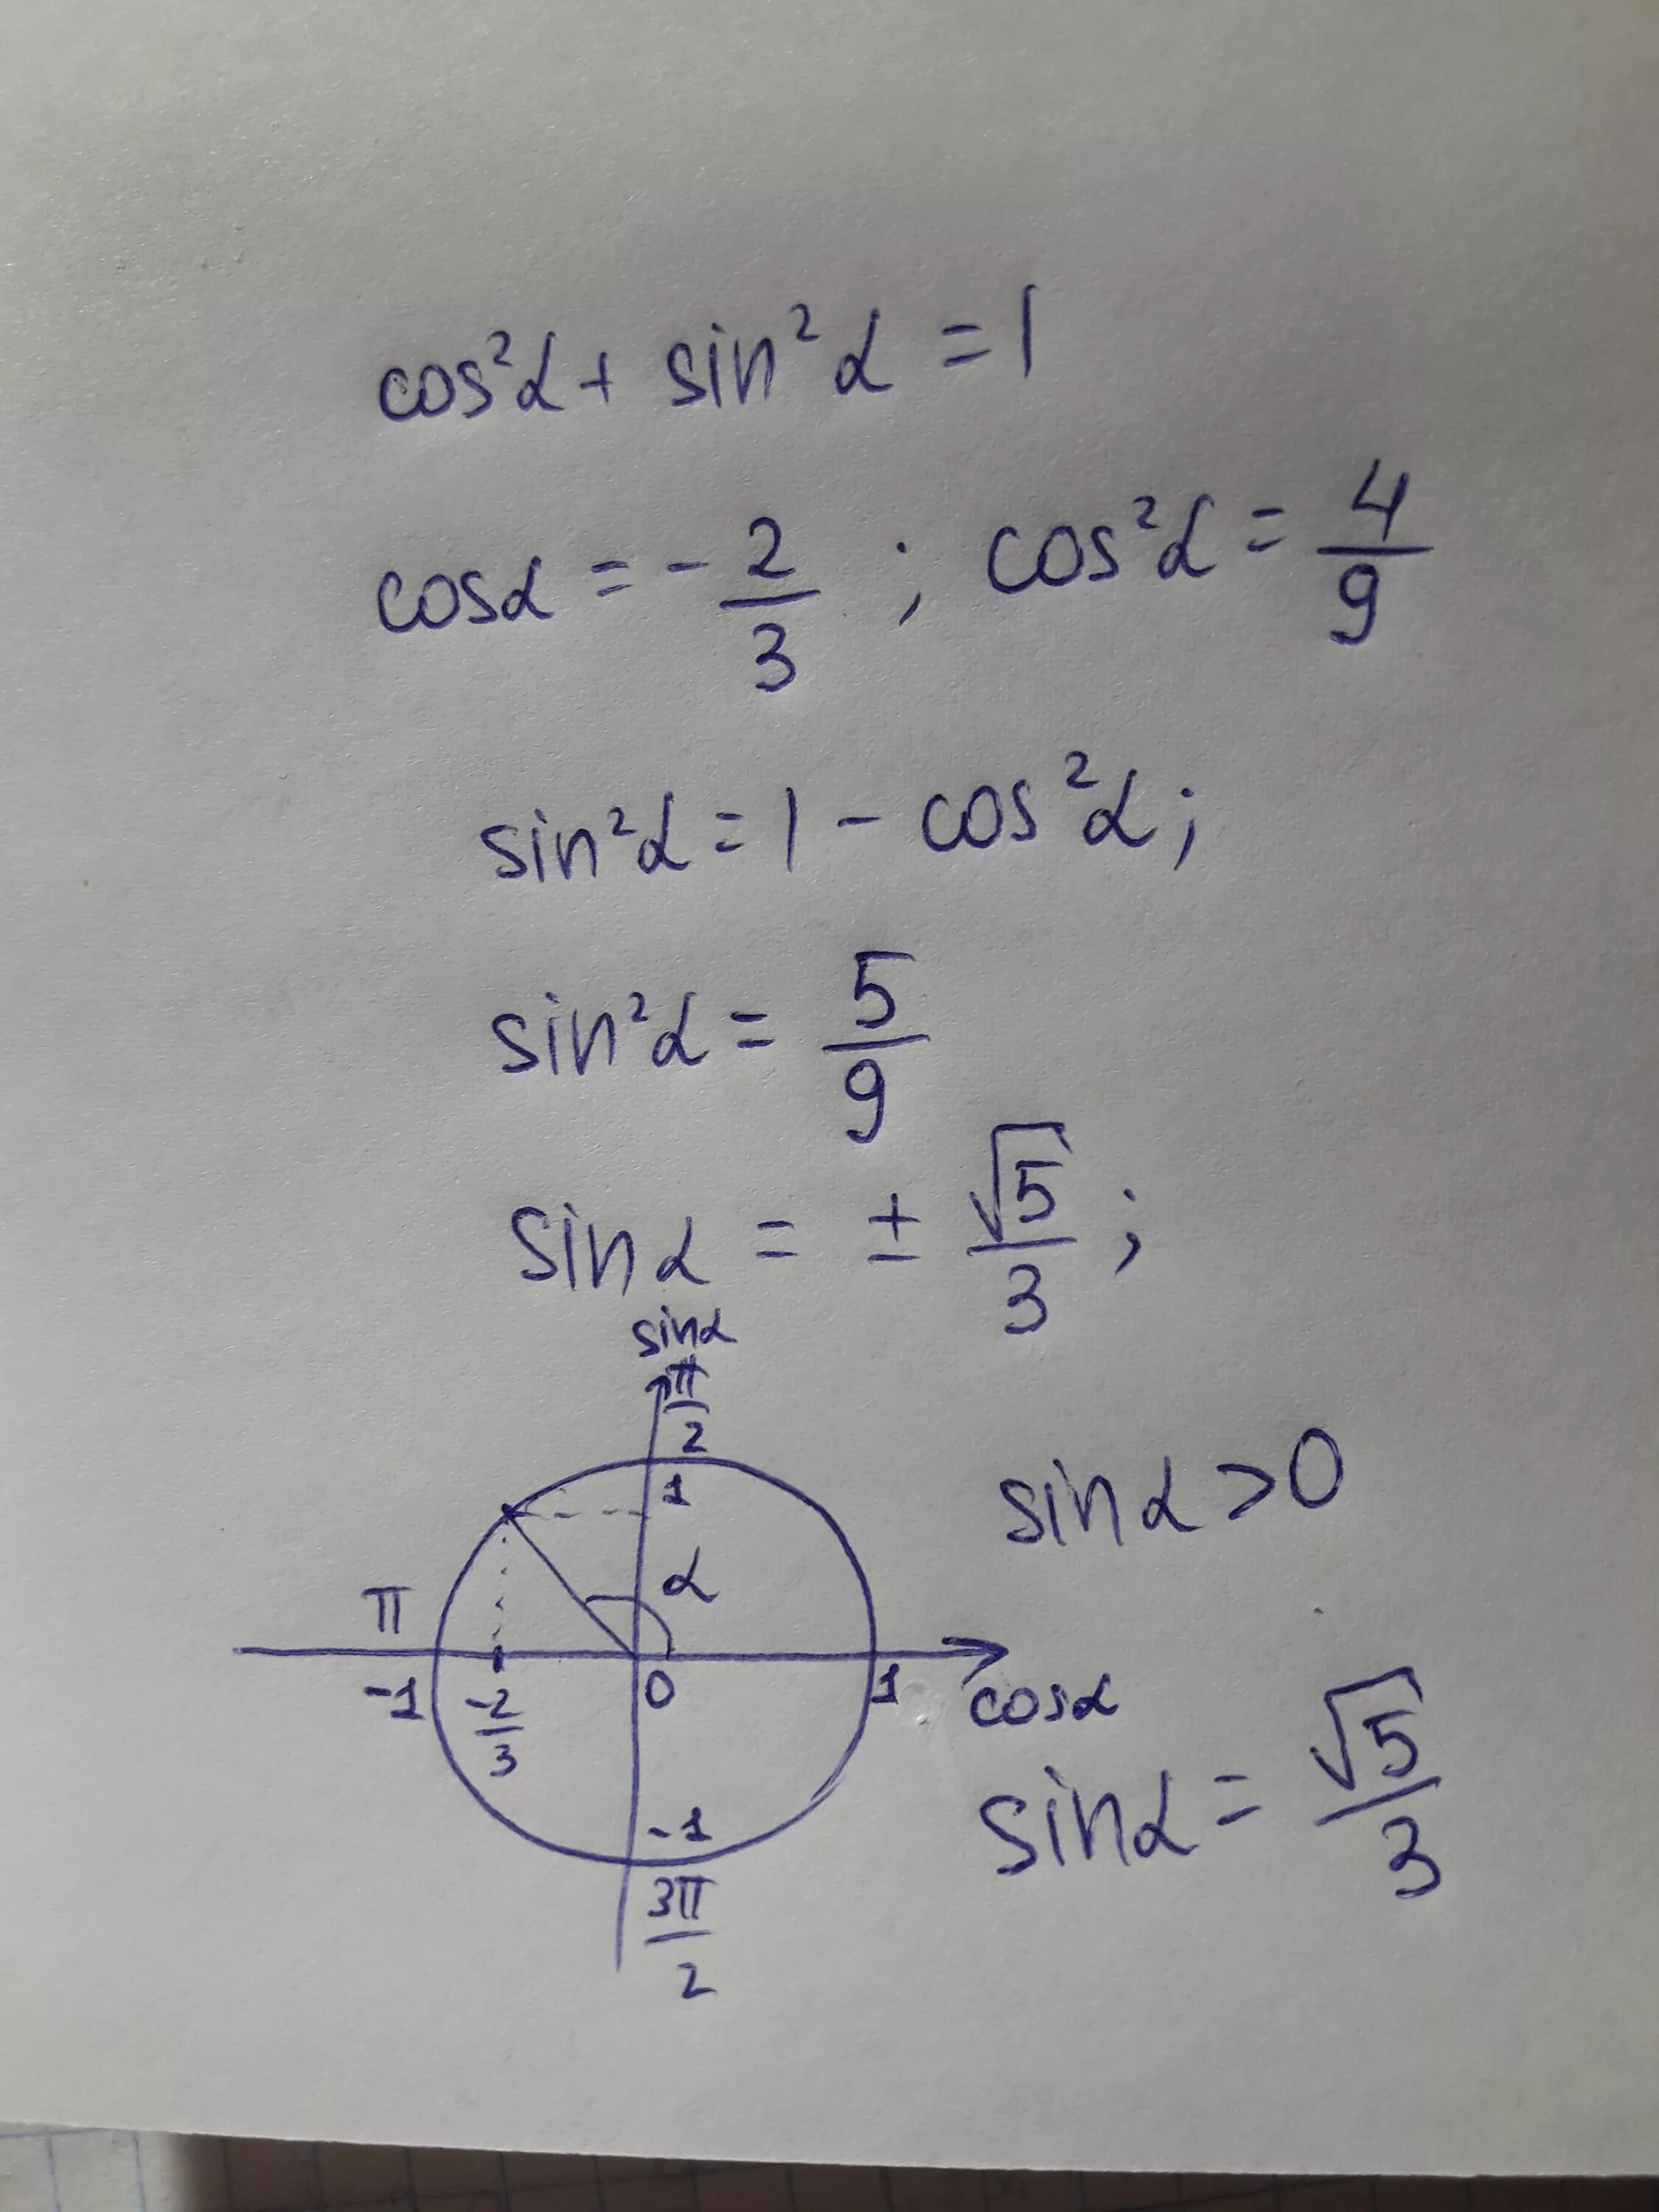 cos²α + sin²α = 1
cosα = -2/3 ; cos²α = 4/9
sin²α = 1 - cos²α;
sin²α = 5/9
sinα = ± √5/3 ;
sinα
π/2
1
sinα > 0
α
π
-1
-2/3
0
1
cosα
sinα = √5/3
-1
3π/2